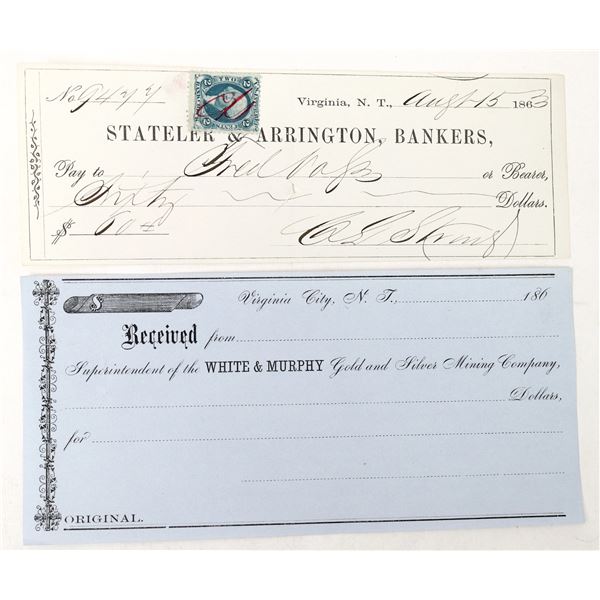 No. 9434
Virginia, N. T., Augt 15 1863
STATELER & ARRINGTON, BANKERS,
Pay to Fred or Bearer,
Sixty Dollars.
$ 60
C L Strong
Virginia City, N. T., 186
$
Received from
Superintendent of the WHITE & MURPHY Gold and Silver Mining Company,
Dollars,
for
ORIGINAL.